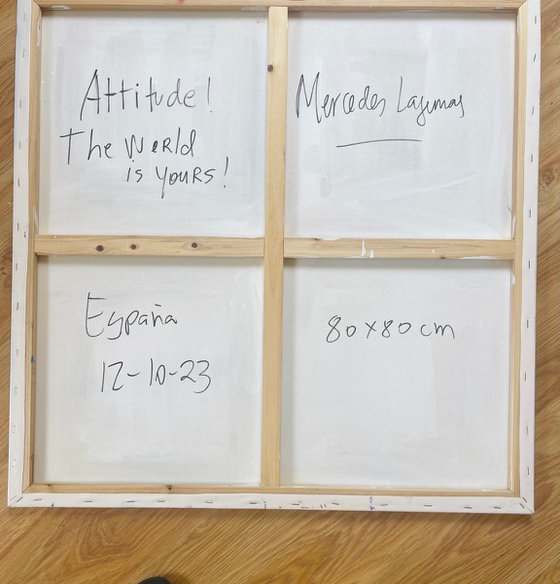 Attitude!
The WORLD
is YOURS!
Mercedes Lagunas
España
12-10-23
80x80cm